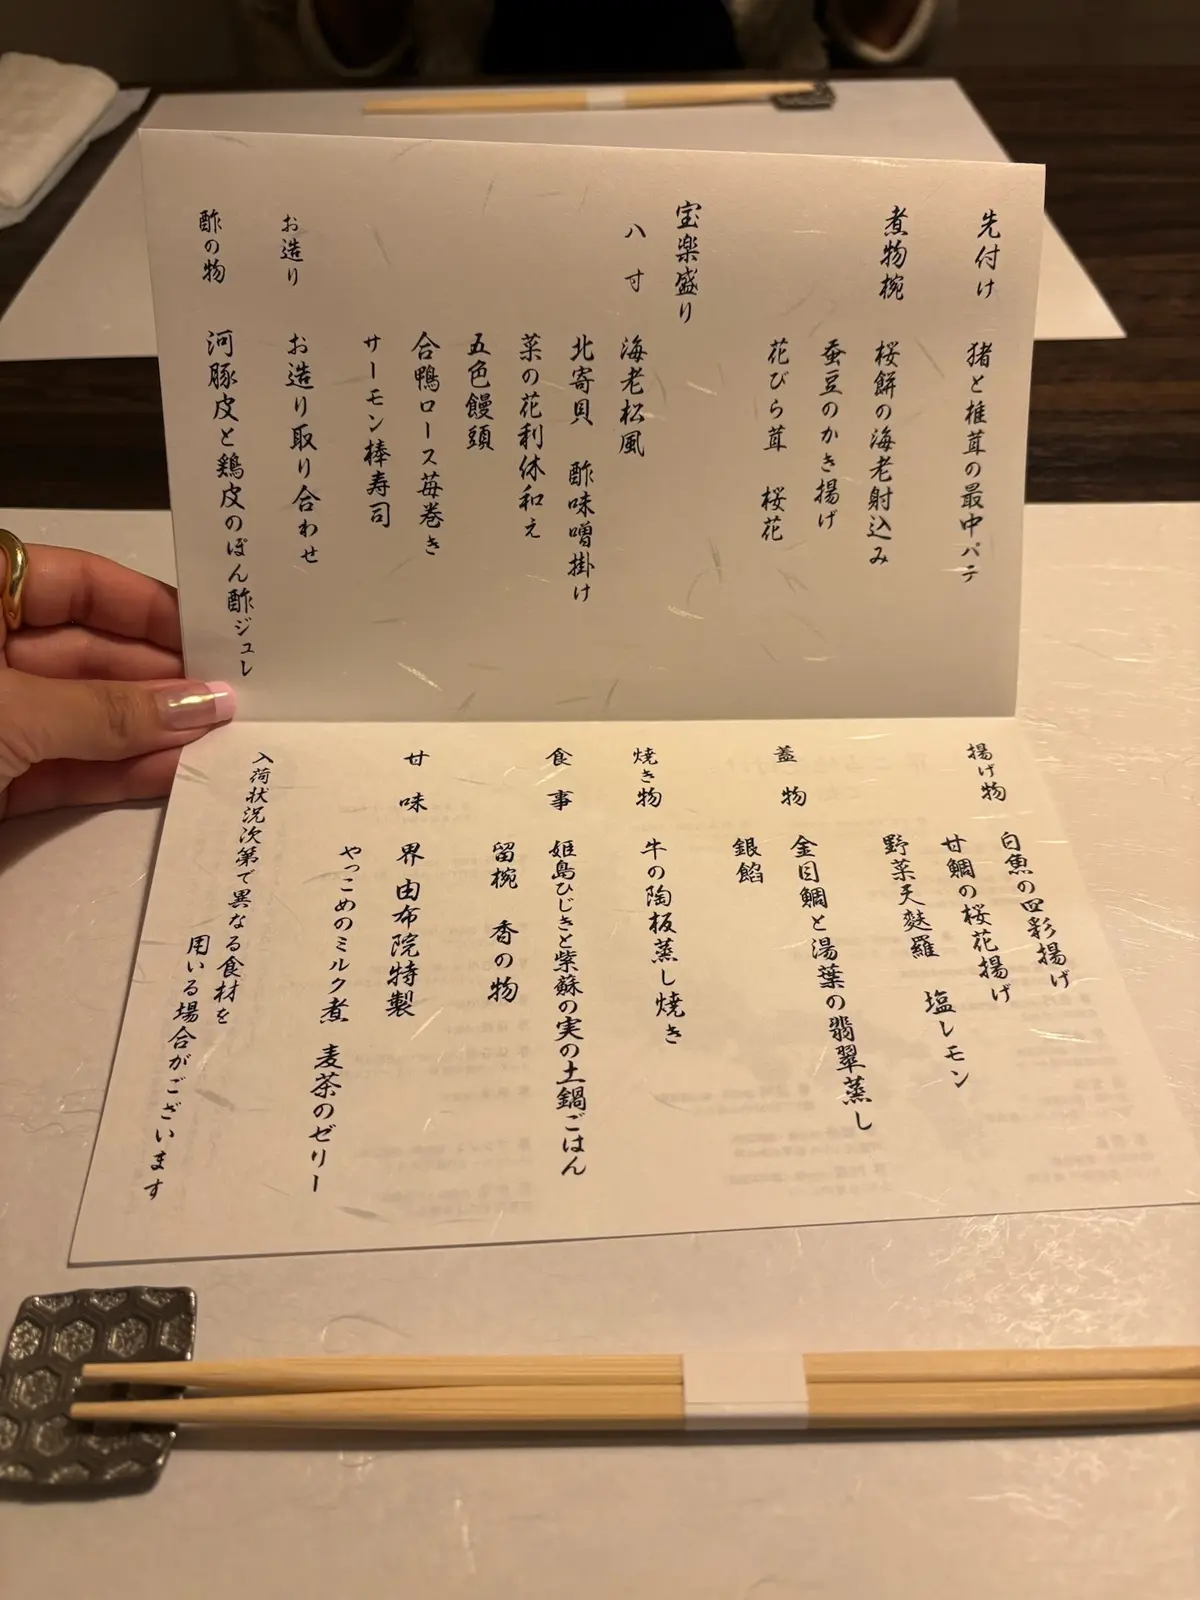 先付け 猪と椎茸の最中パテ
煮物椀 桜餅の海老射込み
蚕豆のかき揚げ
花びら茸 桜花
宝楽盛り
八寸 海老松風
北寄貝 酢味噌掛け
菜の花利休和え
五色饅頭
合鴨ロース苺巻き
サーモン棒寿司
お造り お造り取り合わせ
酢の物 河豚皮と鶏皮のぽん酢ジュレ
揚げ物 白魚の四彩揚げ
甘鯛の桜花揚げ
野菜天麩羅 塩レモン
蓋物 金目鯛と湯葉の翡翠蒸し
銀餡
焼き物 牛の陶板蒸し焼き
食事 姫島ひじきと紫蘇の実の土鍋ごはん
留椀 香の物
甘味 界 由布院特製
やっこめのミルク煮 麦茶のゼリー
入荷状況次第で異なる食材を
用いる場合がございます